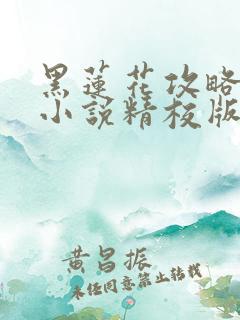 黑莲花攻略
小说精校版
黄昌振
未经同意禁止转载